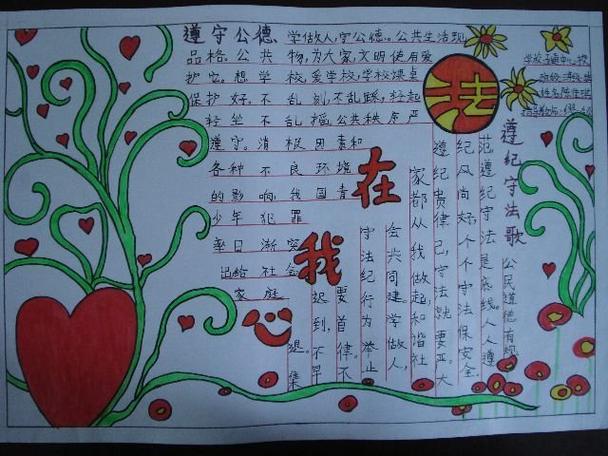 遵守公德 学做人,守公德。公共生活现
品格。公共物,为大家,文明使有爱
护它。想学校,爱学校,学校桌
保护好。不乱刻,不乱踩,轻起
轻坐不乱摇。公共秩序严
遵守。消极因素和
各种不良环境
的影响,我国青
少年犯罪
率日渐突
出给社会
家庭
法
在
我
心
学校
班级
姓名
遵纪守法歌
公民道德有规
范遵纪守法是底线。人人遵
纪风尚好个个守法保安全。
遵纪贵律己守法就要严。大
家都从我做起和谐社
会共同建学做人,
守法纪行为举止
要首律。不
迟到,不早
退。集